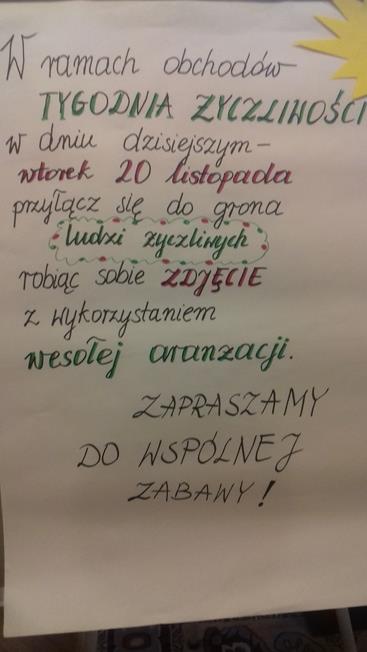 W ramach obchodów
TYGODNIA ŻYCZLIWOŚCI
w dniu dzisiejszym -
wtorek 20 listopada
przyłącz się do grona
ludzi życzliwych
robiąc sobie ZDJĘCIE
z wykorzystaniem
wesołej aranżacji.
ZAPRASZAMY
DO WSPÓLNEJ
ZABAWY!